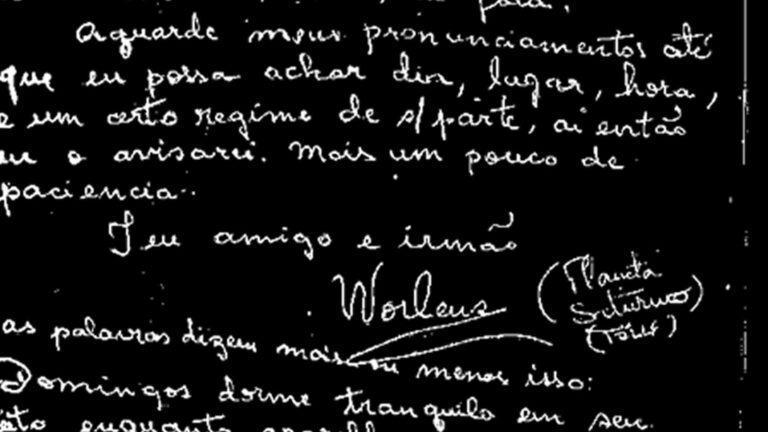 para.
Aguarde meus pronunciamentos até
que eu possa achar dia, lugar, hora,
e um certo regime de s/parte, aí então
eu o avisarei. Mais um pouco de
paciencia.
Teu amigo e irmão
Worleus (Planeta
Saturno)
as palavras dizem mais ou menos isso:
Domingos dorme tranquilo em seu
enquanto